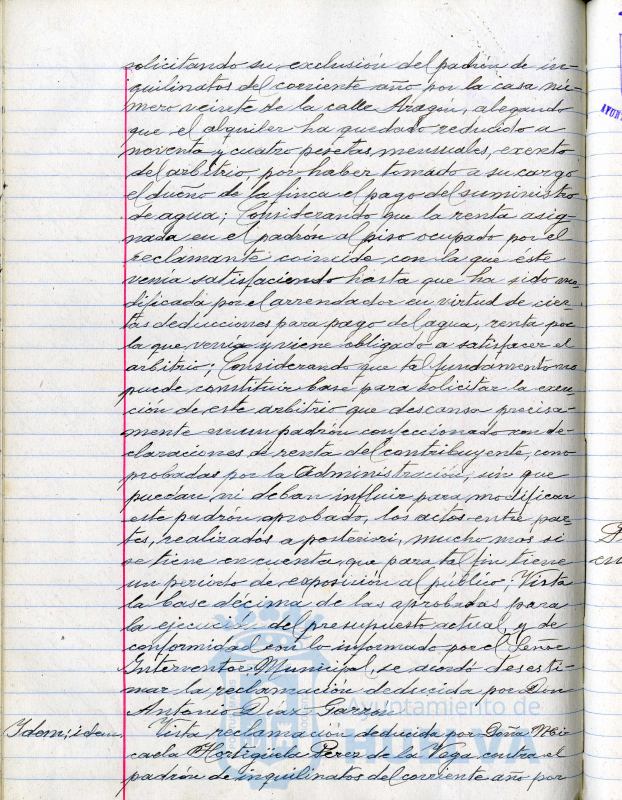 solicitando su exclusión del padrón de in-
quilinatos del corriente año por la casa nú-
mero veinte de la calle Aragón, alegando
que el alquiler ha quedado reducido a
noventa y cuatro pesetas mensuales, exento
del arbitrio, por haber tomado a su cargo
el dueño de la finca el pago del suministro
de agua; Considerando que la renta asig-
nada en el padrón al piso ocupado por el
reclamante coincide con la que éste
venía satisfaciendo hasta que ha sido mo-
dificada por el arrendador en virtud de cier-
tas deducciones para pago del agua, renta por
la que venía y viene obligado a satisfacer el
arbitrio; Considerando que tal fundamento no
puede constituir base para solicitar la exen-
ción de este arbitrio que descansa precisa-
mente en un padrón confeccionado con de-
claraciones de renta del contribuyente, com-
probadas por la Administración, sin que
puedan ni deban influir para modificar
este padrón aprobado, los actos entre par-
tes, realizados a posteriori, mucho mas si
se tiene en cuenta que para tal fin tiene
un periodo de exposición al público; Vista
la base décima de las aprobadas para
la ejecución del presupuesto actual, y de
conformidad con lo informado por el Señor
Interventor Municipal, se acordó desesti-
mar la reclamación deducida por Don
Antonio Díaz Garzón
Ayuntamiento de
HUELVA
Idem; idem. Vista reclamación deducida por Doña Mi-
caela Hortigüela Perez de la Vega contra el
padrón de inquilinatos del corriente año por